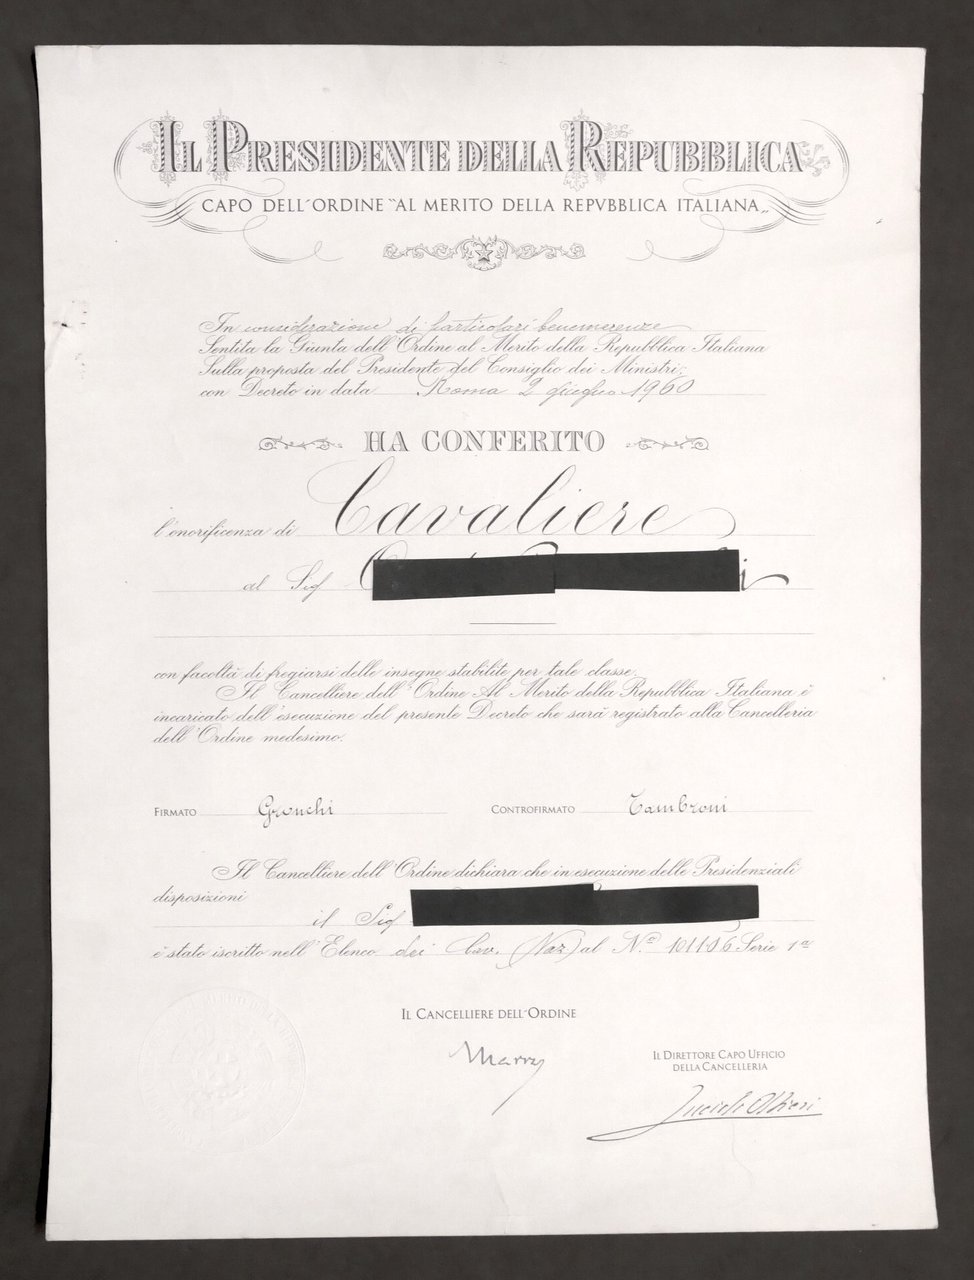 IL PRESIDENTE DELLA REPUBBLICA
CAPO DELL'ORDINE "AL MERITO DELLA REPVBBLICA ITALIANA"
In considerazione di particolari benemerenze
Sentita la Giunta dell'Ordine al Merito della Repubblica Italiana
Sulla proposta del Presidente del Consiglio dei Ministri;
con Decreto in data Roma 2 giugno 1960
HA CONFERITO
l'onorificenza di Cavaliere
al Sig
con facoltà di fregiarsi delle insegne stabilite per tale classe.
Il Cancelliere dell'Ordine Al Merito della Repubblica Italiana è
incaricato dell'esecuzione del presente Decreto che sarà registrato alla Cancelleria
dell'Ordine medesimo.
FIRMATO Gronchi CONTROFIRMATO Tambroni
Il Cancelliere dell'Ordine dichiara che in esecuzione delle Presidenziali
disposizioni
il Sig
è stato iscritto nell'Elenco dei Cav. (Naz) al Nº 101106 Serie 1ª
IL CANCELLIERE DELL'ORDINE
IL DIRETTORE CAPO UFFICIO
DELLA CANCELLERIA